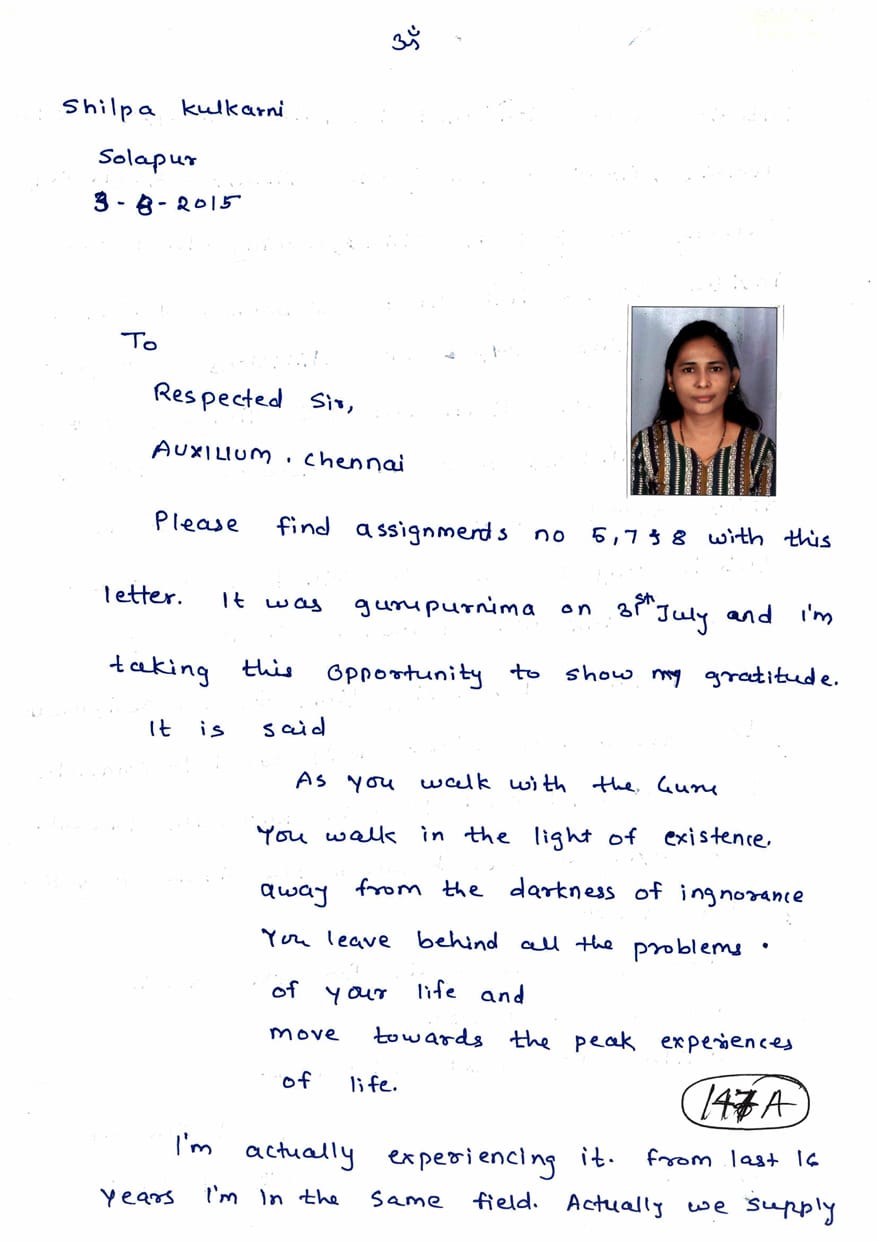 ॐ
Shilpa Kulkarni
Solapur
3-8-2015
To
Respected Sir,
AUXILIUM. Chennai
Please find assignments no 5,7 & 8 with this
letter. It was gurupurnima on 31st July and I'm
taking this opportunity to show my gratitude.
It is said
As you walk with the Guru
You walk in the light of existence.
away from the darkness of ingnorance
You leave behind all the problems.
of your life and
move towards the peak experiences
of life.
147A
I'm actually experiencing it. From last 16
years I'm in the same field. Actually we supply